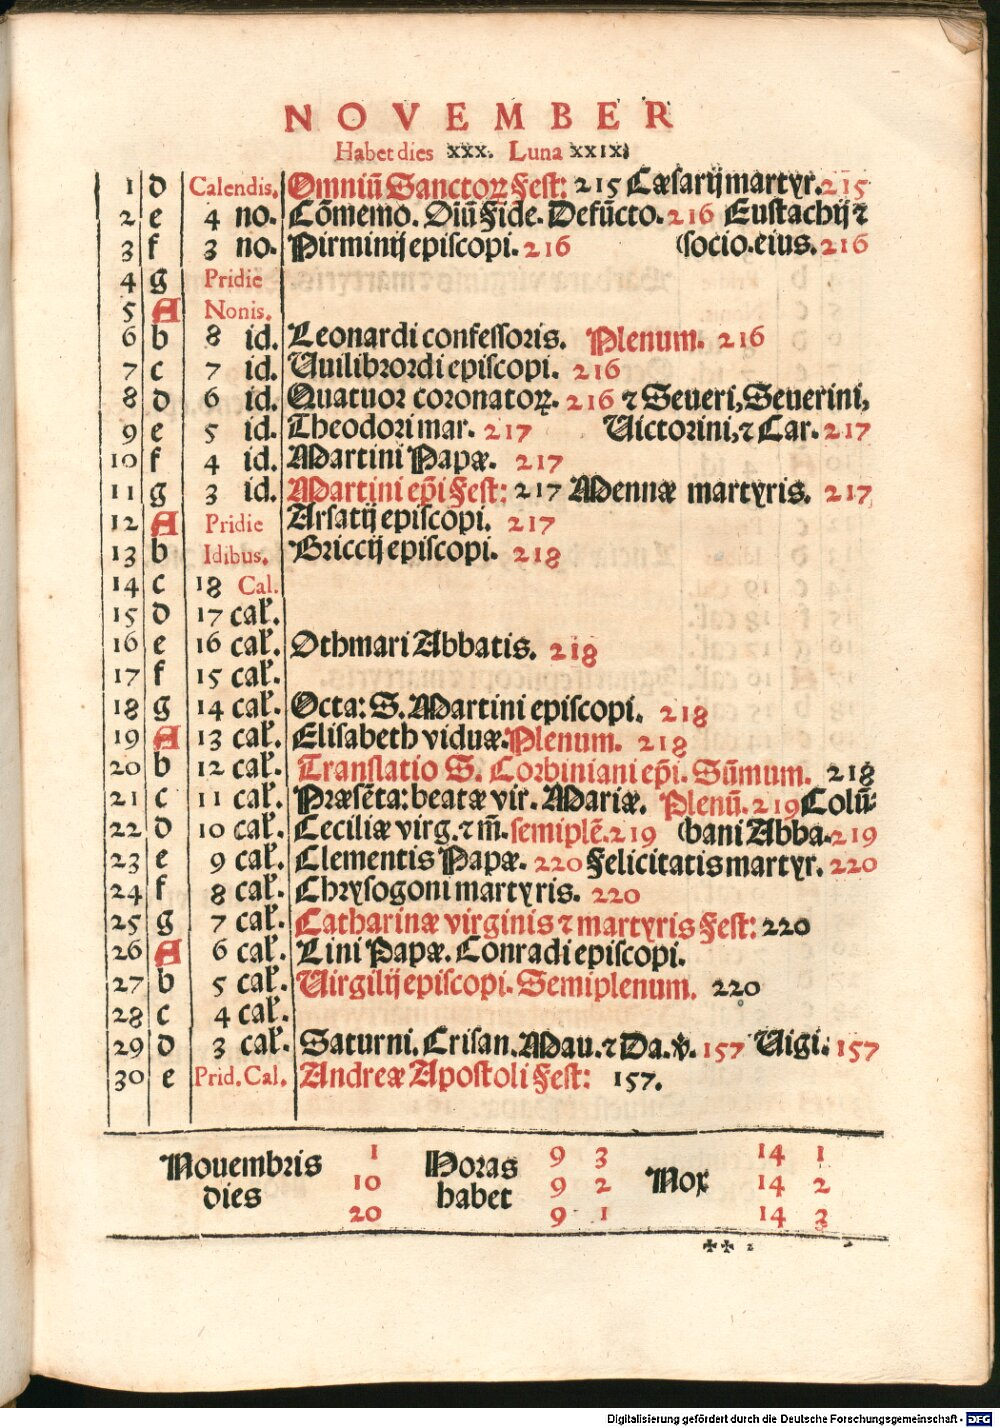 NOVEMBER
Habet dies xxx. Luna xxix.
1 d Calendis. Omniũ Sanctoꝝ Fest: 215 Cæsarij martyr. 215
2 e 4 no. Cõmemo. Oiũ Fide. Defũcto. 216 Eustachij ⁊
3 f 3 no. Pirminij episcopi. 216 (socio. eius. 216
4 g Pridie
5 A Nonis.
6 b 8 id. Leonardi confessoris. Plenum. 216
7 c 7 id. Vuilibrordi episcopi. 216
8 d 6 id. Quatuor coronatoꝝ. 216 ⁊ Seueri, Seuerini,
9 e 5 id. Theodori mar. 217 Victorini, ⁊ Car. 217
10 f 4 id. Martini Papæ. 217
11 g 3 id. Martini epĩ Fest: 217 Mennæ martyris. 217
12 A Pridie Arsatij episcopi. 217
13 b Idibus. Briccij episcopi. 218
14 c 18 Cal.
15 d 17 cal̃.
16 e 16 cal̃. Othmari Abbatis. 218
17 f 15 cal̃.
18 g 14 cal̃. Octa: S. Martini episcopi. 218
19 A 13 cal̃. Elisabeth viduæ: Plenum. 218
20 b 12 cal̃. Translatio S. Corbiniani epĩ. Sũmum. 218
21 c 11 cal̃. Præsẽta: beatæ vir. Mariæ. Plenũ. 219 Colũ-
22 d 10 cal̃. Ceciliæ virg. ⁊ m̃. semiplẽ. 219 (bani Abba. 219
23 e 9 cal̃. Clementis Papæ. 220 Felicitatis martyr. 220
24 f 8 cal̃. Chrysogoni martyris. 220
25 g 7 cal̃. Catharinæ virginis ⁊ martyris Fest: 220
26 A 6 cal̃. Lini Papæ. Conradi episcopi.
27 b 5 cal̃. Virgilij episcopi. Semiplenum. 220
28 c 4 cal̃.
29 d 3 cal̃. Saturni. Crisan. Mau. ⁊ Da. v̆. 157 Vigi. 157
30 e Prid. Cal. Andreæ Apostoli Fest: 157.
Nouembris dies 1 Horas habet 9 3 Nox 14 1
10 9 2 14 2
20 9 1 14 3
✠✠ 2
Digitalisierung gefördert durch die Deutsche Forschungsgemeinschaft - DFG